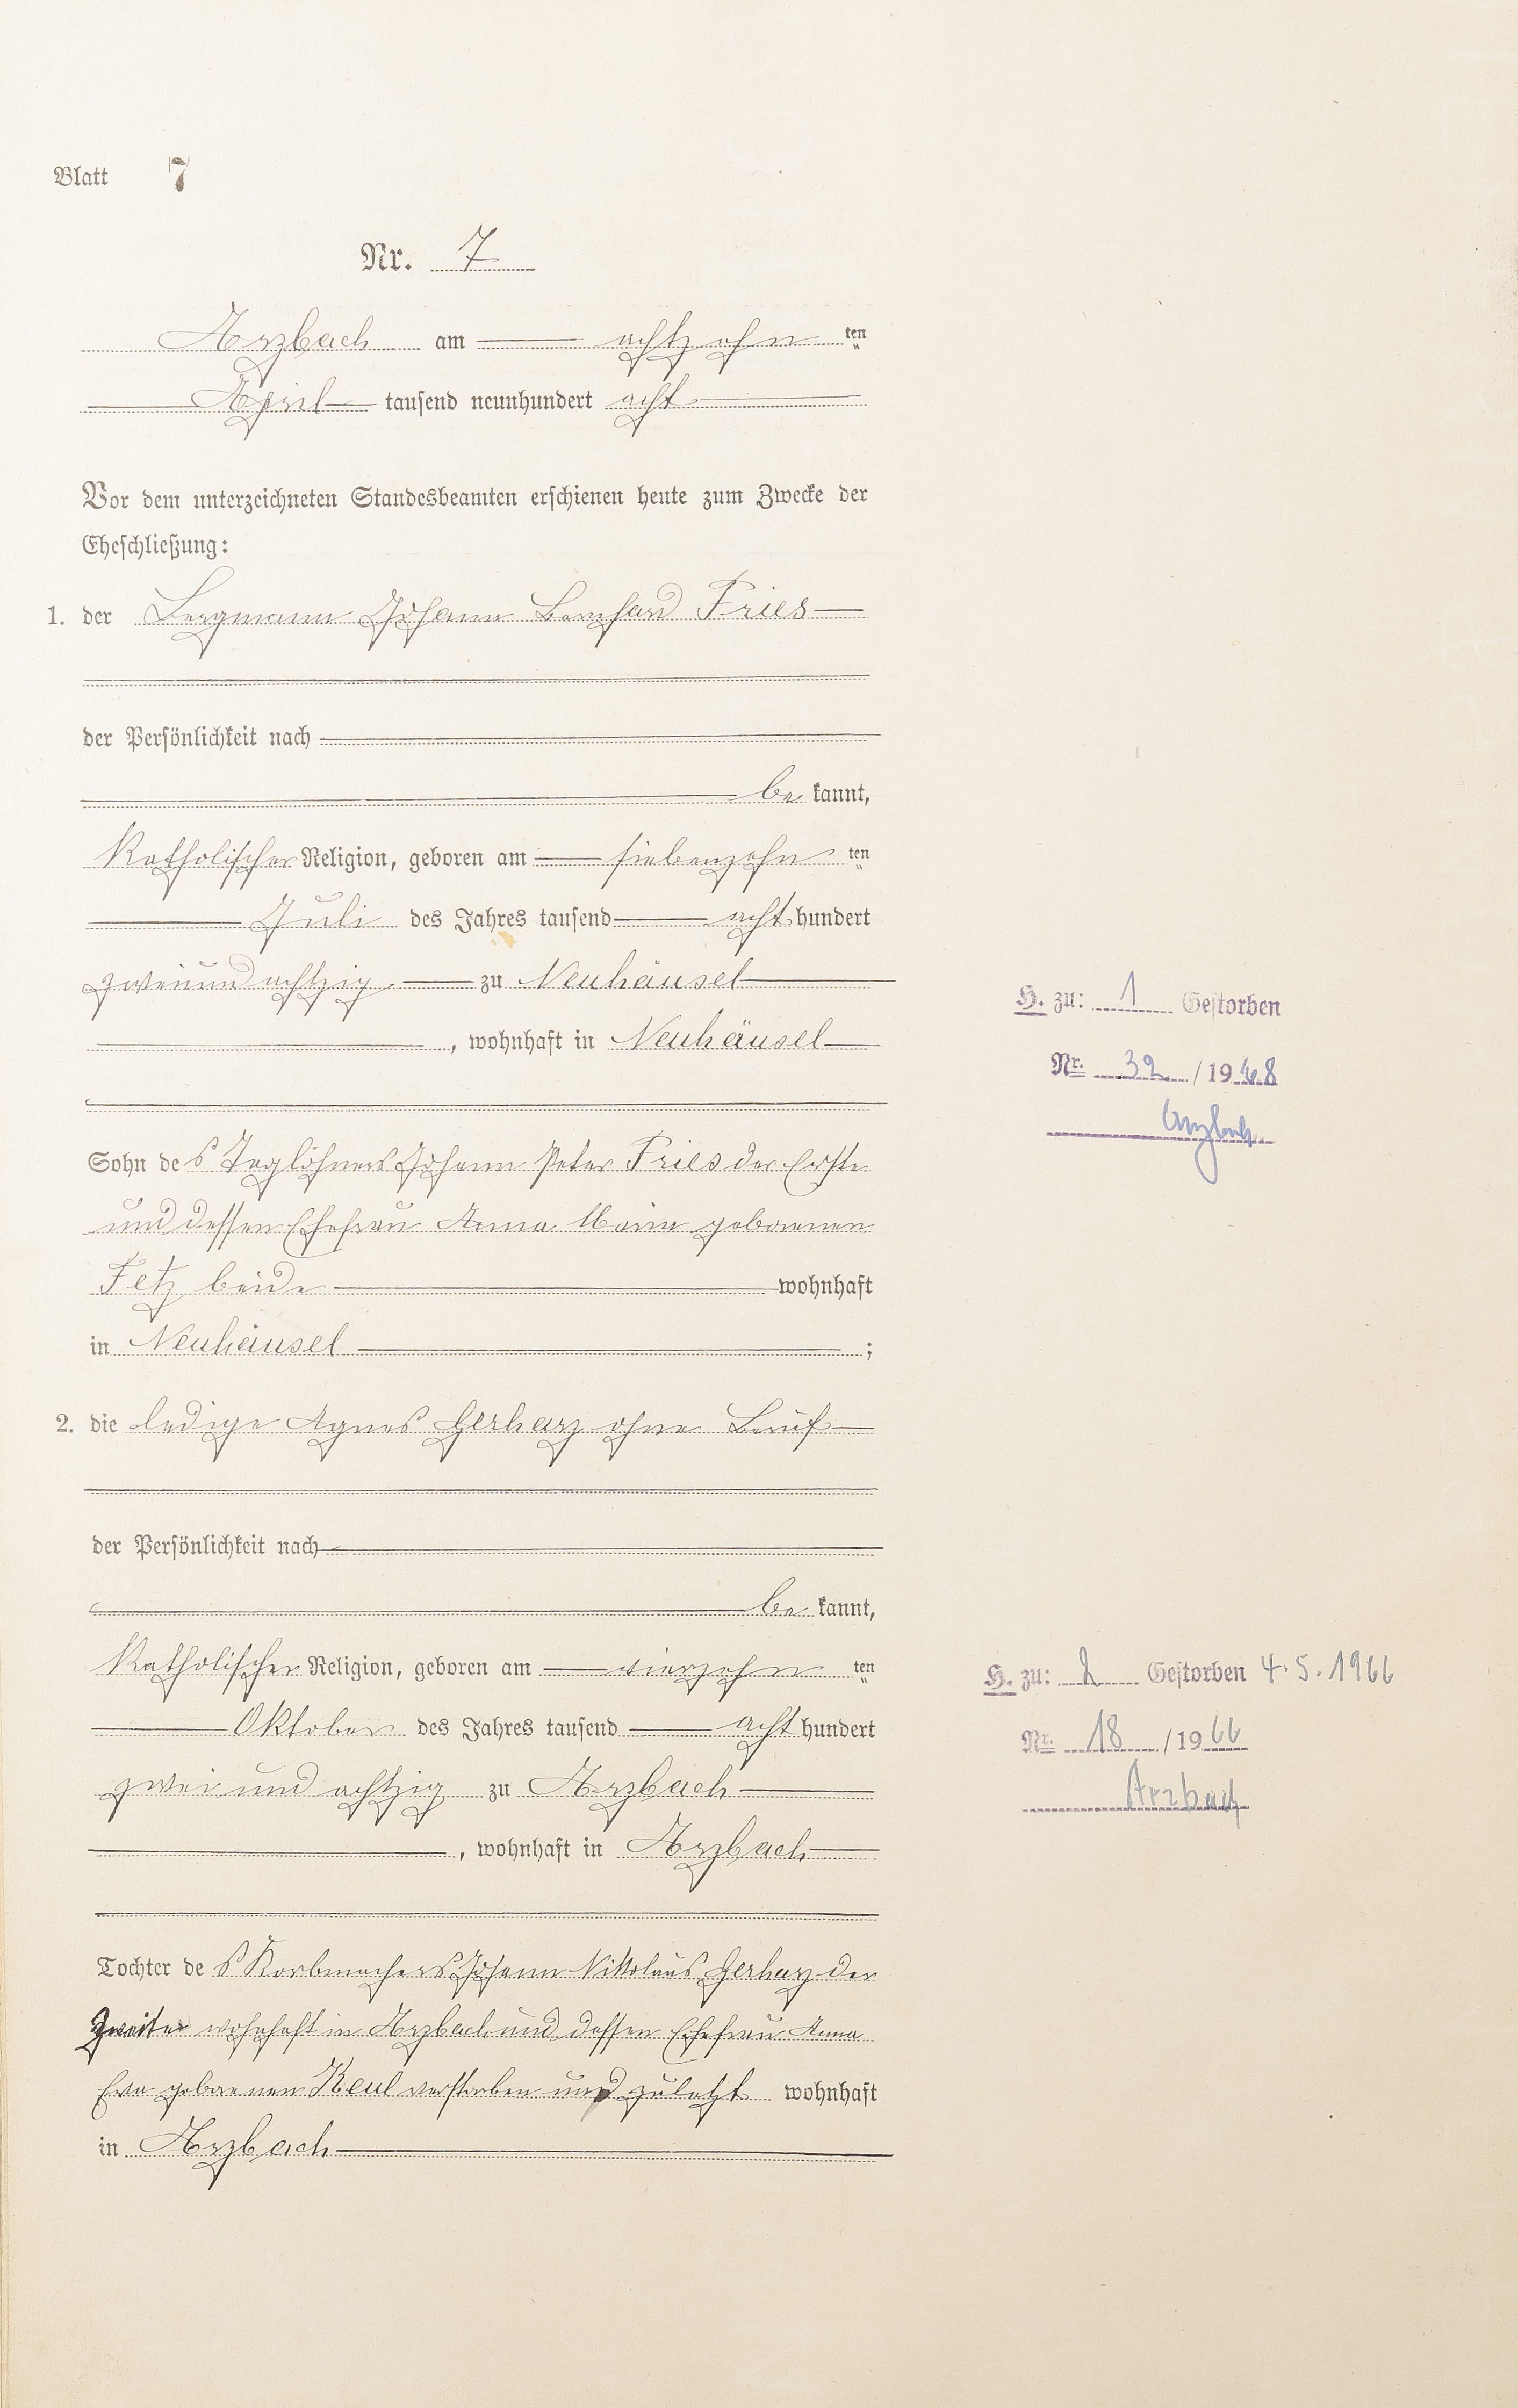 Blatt 7
Nr. 7
Arzbach am achtzehn ten
April tausend neunhundert acht
Vor dem unterzeichneten Standesbeamten erschienen heute zum Zwecke der
Eheschließung:
1. der Bergmann Johann Bernhard Fries
der Persönlichkeit nach
be kannt,
Katholischer Religion, geboren am siebenzehn ten
Juli des Jahres tausend acht hundert
zweiundachtzig zu Neuhäusel
, wohnhaft in Neuhäusel
H. zu: 1 Gestorben
Nr. 32 / 1948
Arzbach
Sohn des Taglöhners Johann Peter Fries der Erste
und dessen Ehefrau Anna Maria geborenen
Fetz beide wohnhaft
in Neuhäusel ;
2. die ledige Agnes Gerharz ohne Beruf
der Persönlichkeit nach
be kannt,
Katholischer Religion, geboren am vierzehn ten
Oktober des Jahres tausend acht hundert
zwei und achtzig zu Arzbach
, wohnhaft in Arzbach
H. zu: 2 Gestorben 4.5.1966
Nr. 18 / 1966
Arzbach
Tochter des Korbmachers Johann Nikolaus Gerharz der
Zweite wohnhaft in Arzbach und dessen Ehefrau Anna
Eva geborenen Keul verstorben und zuletzt wohnhaft
in Arzbach